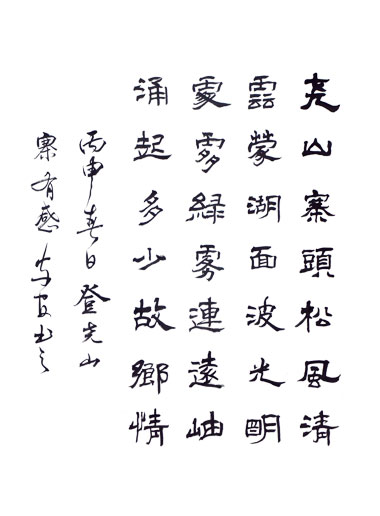 尧山寨頭松風清
雲蒙湖面波光明
處處緑雾連遠岫
涌起多少故鄉情
丙申春日登尧山
寨有感